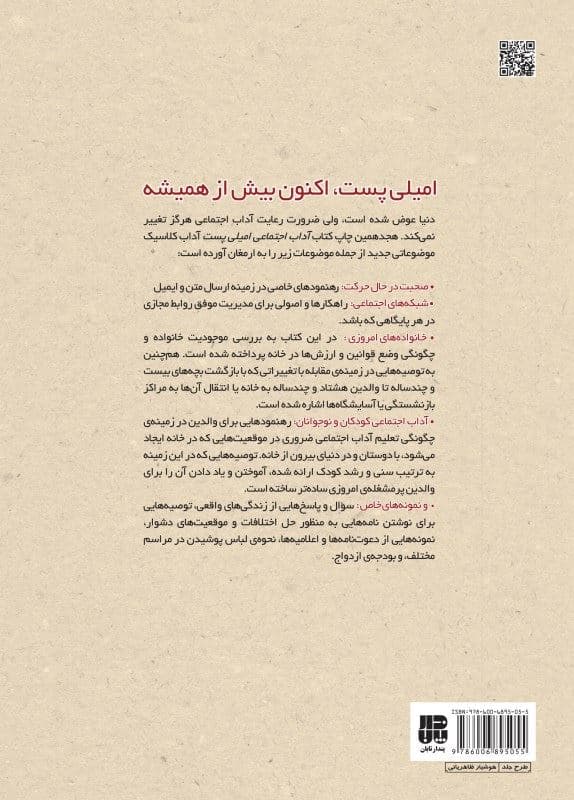 امیلی پست، اکنون بیش از همیشه
دنیا عوض شده است، ولی ضرورت رعایت آداب اجتماعی هرگز تغییر
نمی‌کند. هجدهمین چاپ کتاب آداب اجتماعی امیلی پست آداب کلاسیک
موضوعاتی جدید از جمله موضوعات زیر را به ارمغان آورده است:
• صحبت در حال حرکت: رهنمودهای خاصی در زمینه ارسال متن و ایمیل
• شبکه‌های اجتماعی: راهکارها و اصولی برای مدیریت موفق روابط مجازی
در هر پایگاهی که باشد.
• خانواده‌های امروزی: در این کتاب به بررسی موجودیت خانواده و
چگونگی وضع قوانین و ارزش‌ها در خانه پرداخته شده است. هم‌چنین
به توصیه‌هایی در زمینه‌ی مقابله با تغییراتی که با بازگشت بچه‌های بیست
و چندساله تا والدین هشتاد و چندساله به خانه یا انتقال آن‌ها به مراکز
بازنشستگی یا آسایشگاه‌ها اشاره شده است.
• آداب اجتماعی کودکان و نوجوانان: رهنمودهایی برای والدین در زمینه‌ی
چگونگی تعلیم آداب اجتماعی ضروری در موقعیت‌هایی که در خانه ایجاد
می‌شود، با دوستان و در دنیای بیرون از خانه. توصیه‌هایی که در این زمینه
به ترتیب سنی و رشد کودک ارائه شده، آموختن و یاد دادن آن را برای
والدین پرمشغله‌ی امروزی ساده‌تر ساخته است.
• و نمونه‌های خاص: سؤال و پاسخ‌هایی از زندگی‌های واقعی، توصیه‌هایی
برای نوشتن نامه‌هایی به منظور حل اختلافات و موقعیت‌های دشوار،
نمونه‌هایی از دعوت‌نامه‌ها و اعلامیه‌ها، نحوه‌ی لباس پوشیدن در مراسم
مختلف، و بودجه‌ی ازدواج.
ISBN: 978-600-6895-05-5
9786006895055
پندار تابان
طرح جلد: هوشیار طاهریانی